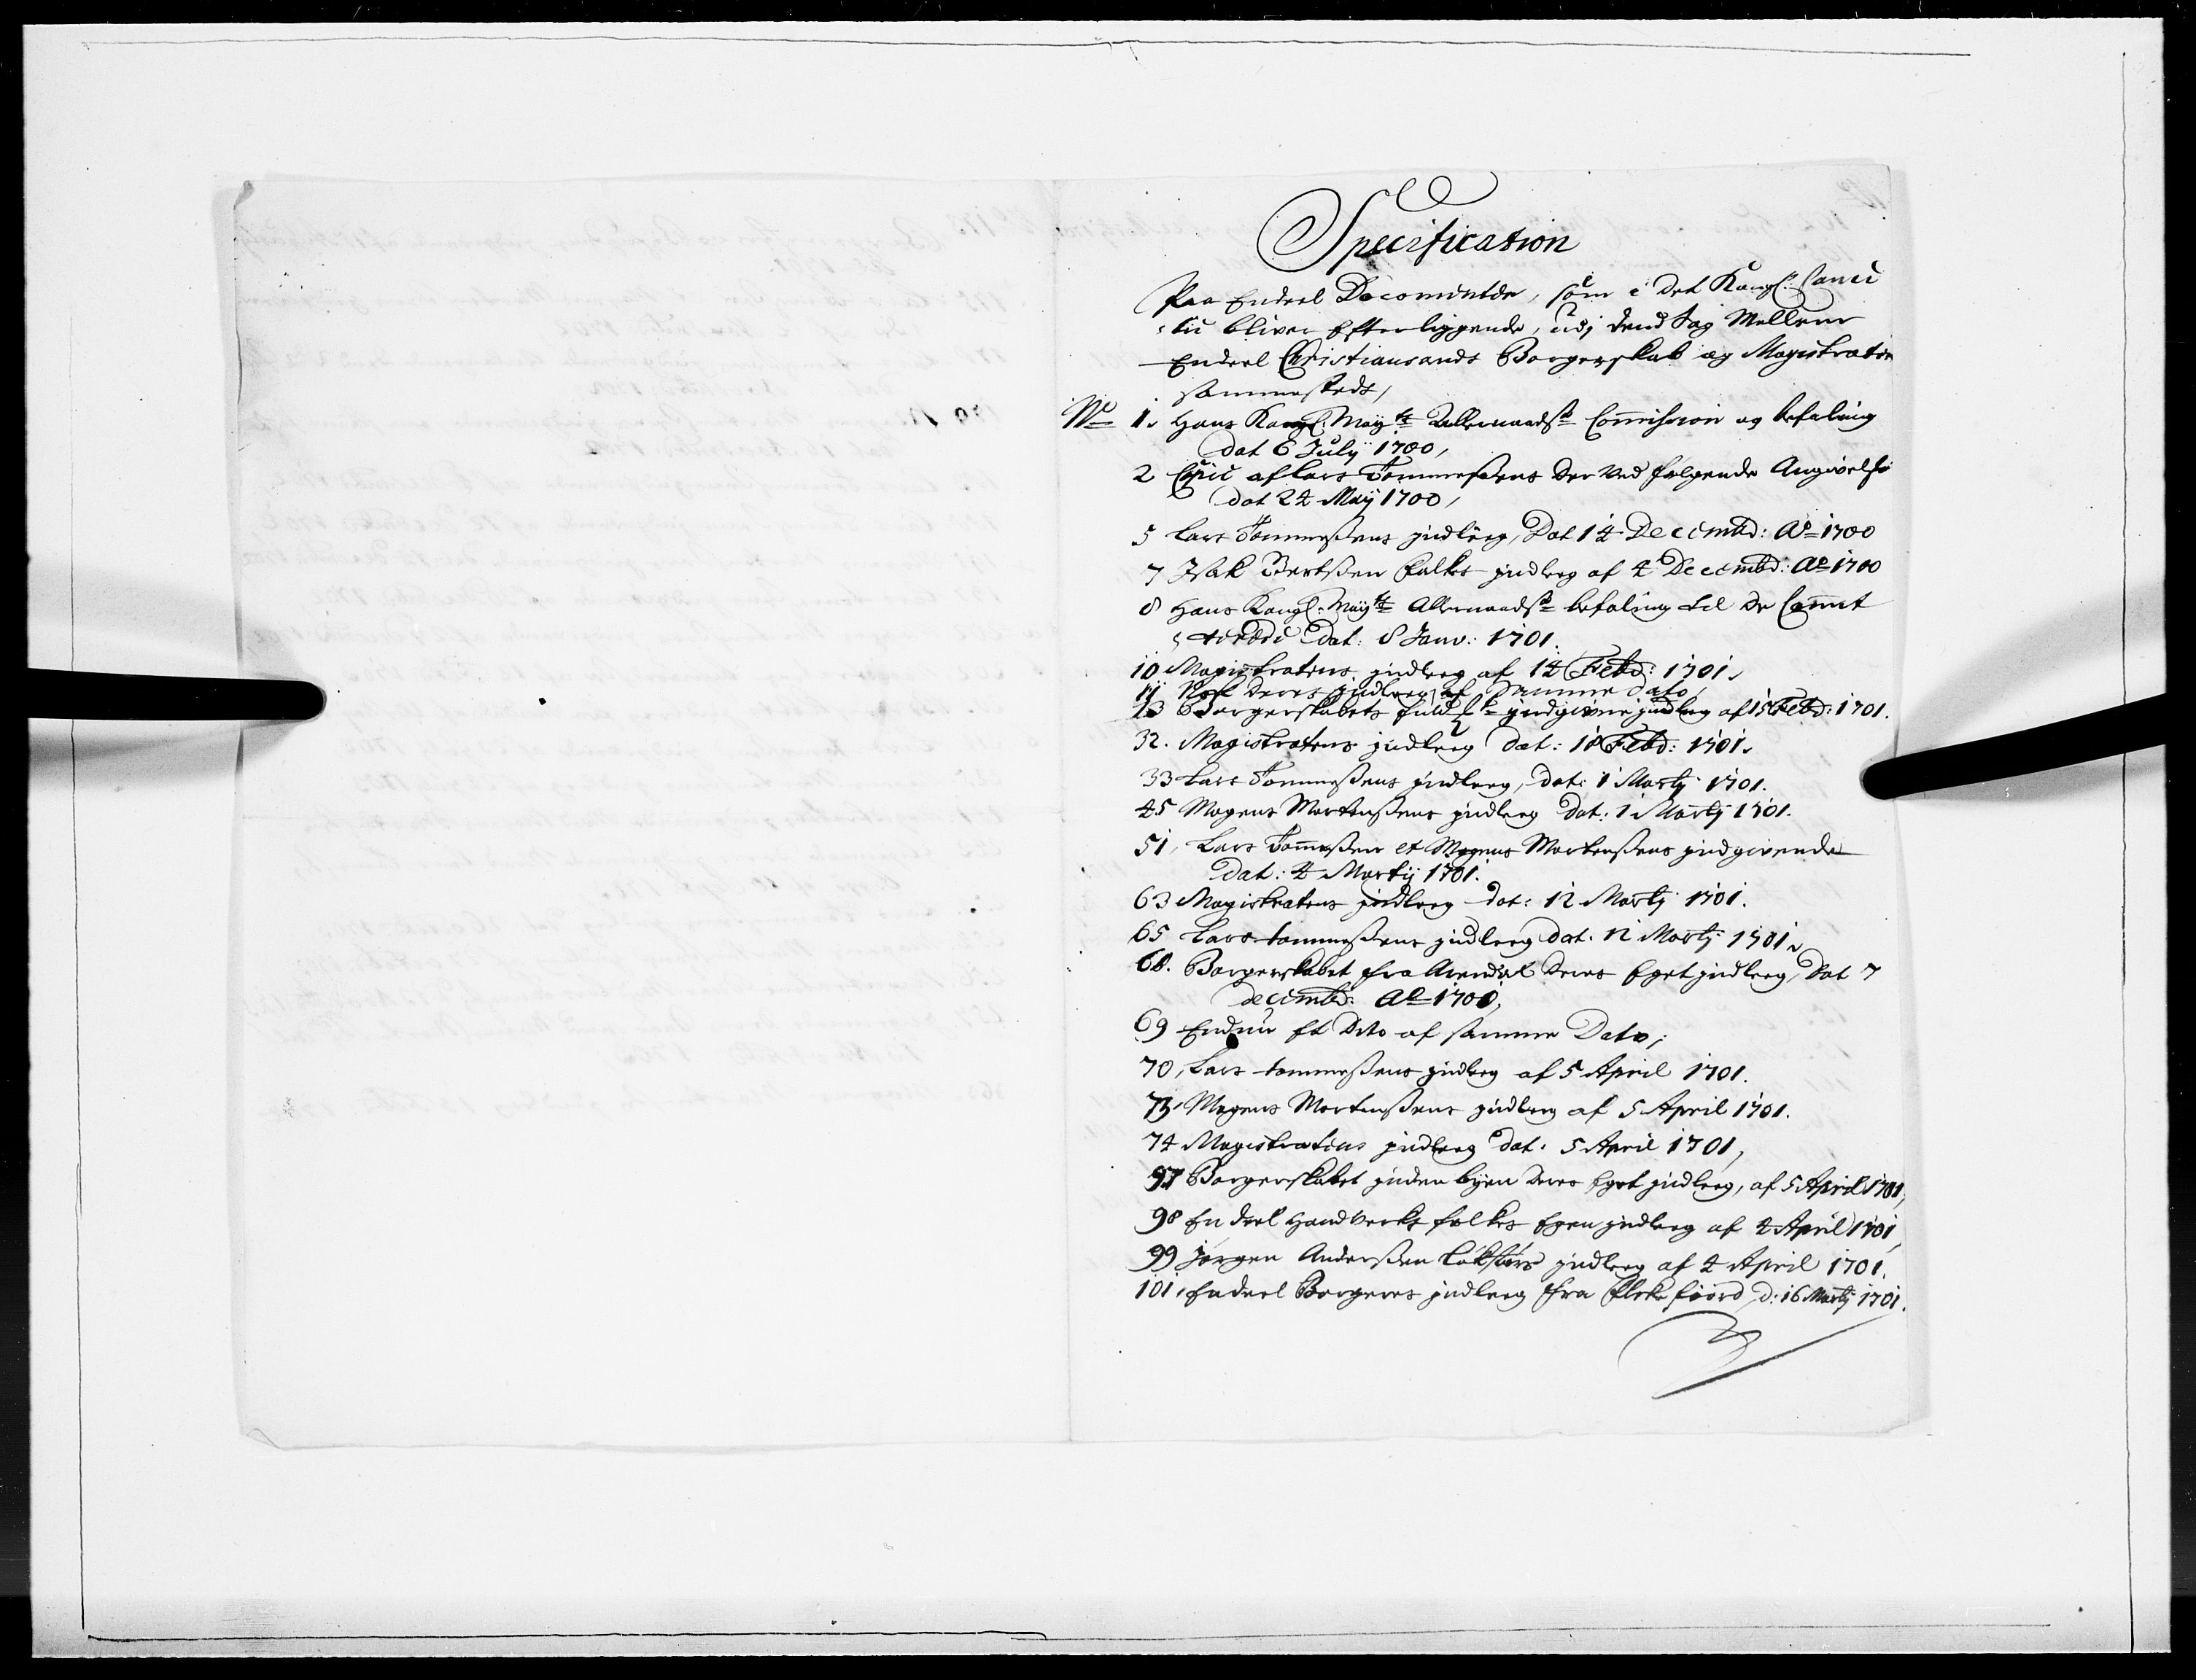 Specification
Paa Endeel Documenter, som i det Kongl: Cancel
lii bliver Efterliggende, udj dend Sag Mellem
Endeel Christiansands Borgerskab og Magistraten
sammesteds,
No 1. Hans Kongl: Mayts Allernaadste Commission og befaling
dat 6 July 1700,
2 Copie af Lars Tommesens der ved følgende Angivelse
dat 24 May 1700,
5 Lars Tommeßens jndleeg, Dat 14 Decembd: Ao 1700
7 Isak Bertßen Falks jndleg af 4 Decembd: Ao 1700
8 Hans Kongl: Mayts Allernaadste befaling til de Commit
terede Dat: 8 Janv: 1701.
10 Magistratens jndleeg af 14 Febd: 1701.
11 Nock deres jndleeg af Samme dato,
13 Borgerskabets jndgivne jndleg af 15 Febd: 1701.
32. Magistratens jndleeg Dat: 18 Febd: 1701.
33 Lars Tommeßens jndleeg, dat: 1 Martij 1701.
45 Mogens Mortenßens jndleeg Dat: 1 Martij 1701.
51, Lars Tommeßen et Mogens Mortenßens jndgivende
Dat: 4 Martij 1701.
63 Magistratens jndleeg dat: 12 Martij 1701.
65 Lars tommeßens jndleeg dat. 12 Martij 1701.
68. Borgerskabet fra Arendal deres Eget jndleeg, Dat 7
decembd: Ao 1700,
69 Endnu Et dito af samme Dato;
70, Lars tommeßens jndleg af 5 April 1701.
73, Mogens Mortenßens jndleeg af 5 April 1701.
74 Magistratens jndleeg dat. 5 April 1701,
97 Borgerskabet jnden byen deres Eget jndleeg, af 5 April 1701,
98 En deel Handverks folkes Egen jndleeg af 4 April 1701,
99 Jørgen Anderßen jndleeg af 4 April 1701.
101, Endeel Borgeres jndleeg fra Flekkefiord, d: 16 Martij 1701.